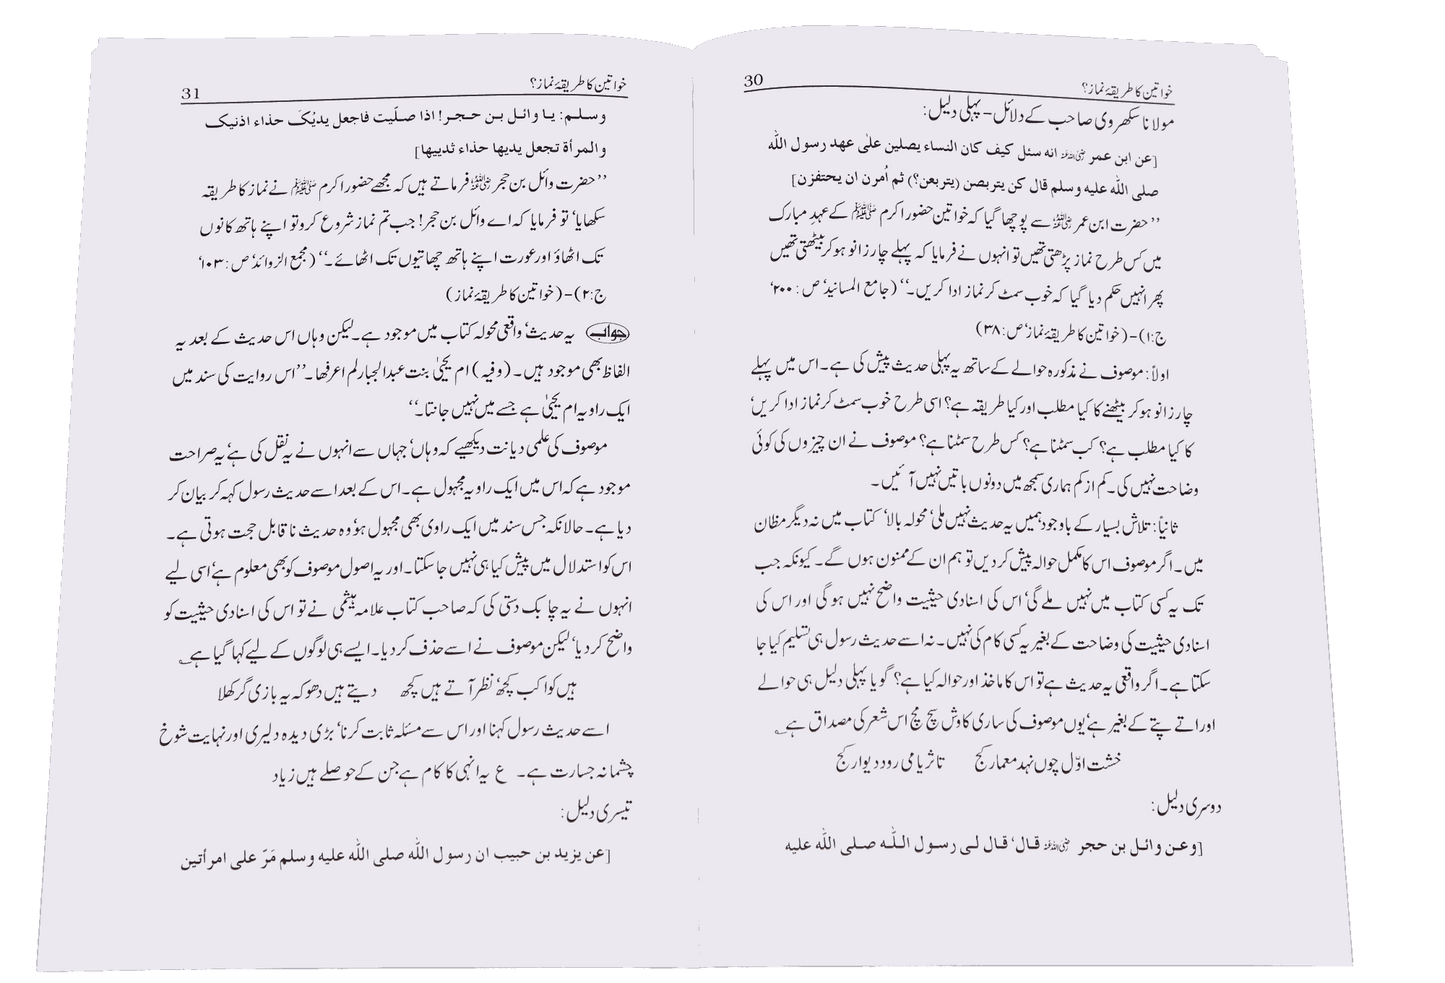 خواتین کا طریقۂ نماز؟ 30
مولانا سکھروی صاحب کے دلائل – پہلی دلیل:
[عن ابن عمر ؓ انه سئل كيف كان النساء يصلين علىٰ عهد رسول الله
صلى الله عليه وسلم قال كن يتربصن (يتربعن؟) ثم اُمرن ان يحتفزن]
’’حضرت ابن عمر ؓ سے پوچھا گیا کہ خواتین حضور اکرم ﷺ کے عہد مبارک
میں کس طرح نماز پڑھتی تھیں تو انہوں نے فرمایا کہ پہلے چار زانو ہو کر بیٹھتی تھیں
پھر انہیں حکم دیا گیا کہ خوب سمٹ کر نماز ادا کریں۔‘‘ (جامع المسانید‘ ص: ۲۰۰‘
ج:۱) – (خواتین کا طریقۂ نماز‘ ص: ۳۸)
اولاً: موصوف نے مذکورہ حوالے کے ساتھ یہ پہلی حدیث پیش کی ہے۔ اس میں پہلے
چار زانو ہو کر بیٹھنے کا کیا مطلب اور کیا طریقہ ہے؟ اسی طرح خوب سمٹ کر نماز ادا کریں‘
کا کیا مطلب ہے؟ کب سمٹنا ہے؟ کس طرح سمٹنا ہے؟ موصوف نے ان چیزوں کی کوئی
وضاحت نہیں کی۔ کم از کم ہماری سمجھ میں دونوں باتیں نہیں آئیں۔
ثانیاً: تلاش بسیار کے باوجود ہمیں یہ حدیث نہیں ملی‘ محولہ بالا‘ کتاب میں نہ دیگر مظان
میں۔ اگر موصوف اس کا مکمل حوالہ پیش کردیں تو ہم ان کے ممنون ہوں گے۔ کیونکہ جب
تک یہ کسی کتاب میں نہیں ملے گی‘ اس کی اسنادی حیثیت واضح نہیں ہوگی اور اس کی
اسنادی حیثیت کی وضاحت کے بغیر یہ کسی کام کی نہیں۔ نہ اسے حدیث رسول ہی تسلیم کیا جا
سکتا ہے۔ اگر واقعی یہ حدیث ہے تو اس کا ماخذ اور حوالہ کیا ہے؟ گویا پہلی دلیل ہی حوالے
اور اتے پتے کے بغیر ہے‘ یوں موصوف کی ساری کاوش سچ مچ اس شعر کی مصداق ہے؂
خشت اوّل چوں نہد معمار کج تا ثریا می رود دیوار کج
دوسری دلیل:
[وعن وائل بن حجر ؓ قال‘ قال لى رسول الله صلى الله عليه
خواتین کا طریقۂ نماز؟ 31
وسلم: يا وائل بن حجر! اذا صلّيت فاجعل يديْكَ حذاء اذنيك
والمرأة تجعل يديها حذاء ثدييها]
’’حضرت وائل بن حجر ؓ فرماتے ہیں کہ مجھے حضور اکرم ﷺ نے نماز کا طریقہ
سکھایا‘ تو فرمایا کہ اے وائل بن حجر! جب تم نماز شروع کرو تو اپنے ہاتھ کانوں
تک اٹھاؤ اور عورت اپنے ہاتھ چھاتیوں تک اٹھائے۔‘‘ (مجمع الزوائد‘ ص: ۱۰۳‘
ج:۲) – (خواتین کا طریقۂ نماز)
جواب یہ حدیث‘ واقعی محولہ کتاب میں موجود ہے۔ لیکن وہاں اس حدیث کے بعد یہ
الفاظ بھی موجود ہیں۔ (وفیہ) ام یحییٰ بنت عبدالجبار لم اعرفها۔’’اس روایت کی سند میں
ایک راویہ ام یحییٰ ہے جسے میں نہیں جانتا۔‘‘
موصوف کی علمی دیانت دیکھیے کہ وہاں‘ جہاں سے انہوں نے یہ نقل کی ہے‘ یہ صراحت
موجود ہے کہ اس میں ایک راویہ مجہول ہے۔ اس کے بعد اسے حدیث رسول کہہ کر بیان کر
دیا ہے۔ حالانکہ جس سند میں ایک راوی بھی مجہول ہو‘ وہ حدیث ناقابل حجت ہوتی ہے۔
اس کو استدلال میں پیش کیا ہی نہیں جاسکتا۔ اور یہ اصول موصوف کو بھی معلوم ہے‘ اسی لیے
انہوں نے یہ چابک دستی کی کہ صاحب کتاب علامہ ہیثمی نے تو اس کی اسنادی حیثیت کو
واضح کردیا‘ لیکن موصوف نے اسے حذف کردیا۔ ایسے ہی لوگوں کے لیے کہا گیا ہے؂
ہیں کواکب کچھ‘ نظر آتے ہیں کچھ دیتے ہیں دھوکہ یہ بازی گر کھلا
اسے حدیث رسول کہنا اور اس سے مسئلہ ثابت کرنا‘ بڑی دیدہ دلیری اور نہایت شوخ
چشمانہ جسارت ہے۔ ع یہ انہی کا کام ہے جن کے حوصلے ہیں زیاد
تیسری دلیل:
[عن يزيد بن حبيب ان رسول الله صلى الله عليه وسلم مَرّ على امرأتين